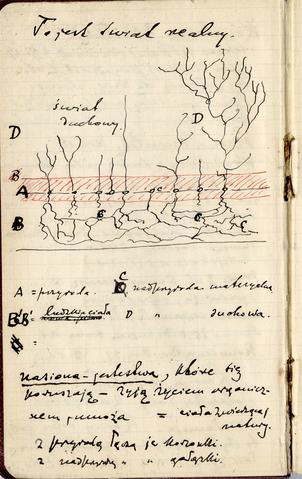 To jest świat realny.
świat
duchowy.
D
D
B
A
B
C
C
C
A = przyroda. C nadprzyroda materyalna
B B' = ludzkie ciała D " duchowa.
=
nasiona – jestestwa, które się
poruszają – żyją życiem organicz-
nem
= ciała zwierzęcej
natury.
z przyrodą łączą je korzonki.
z nadprzyrodą " " gałązki.